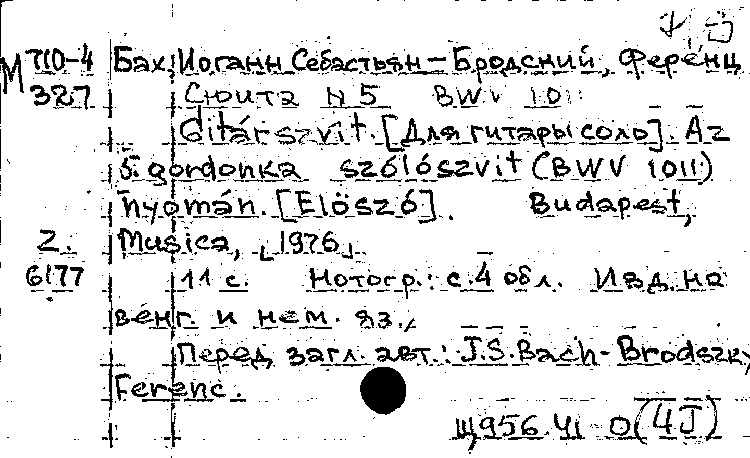 М 710-4 Бах, Иоганн Себастьян - Бродский, Ференц
387 Сюита N 5 BWV 101
Gitárszvit. [Для гитары соло]. Az
5. gordonka szólószvit (BWV 1011)
nyomán. [Előszó]. Budapest,
Z. Musica, [1976]
6177 11 с. Нотогр.: с. 4 обл. Изд. на
венг. и нем. яз.,
Перед загл. авт.: J.S. Bach - Brodszky
Ferenc.
Щ956.41 0 (4J)